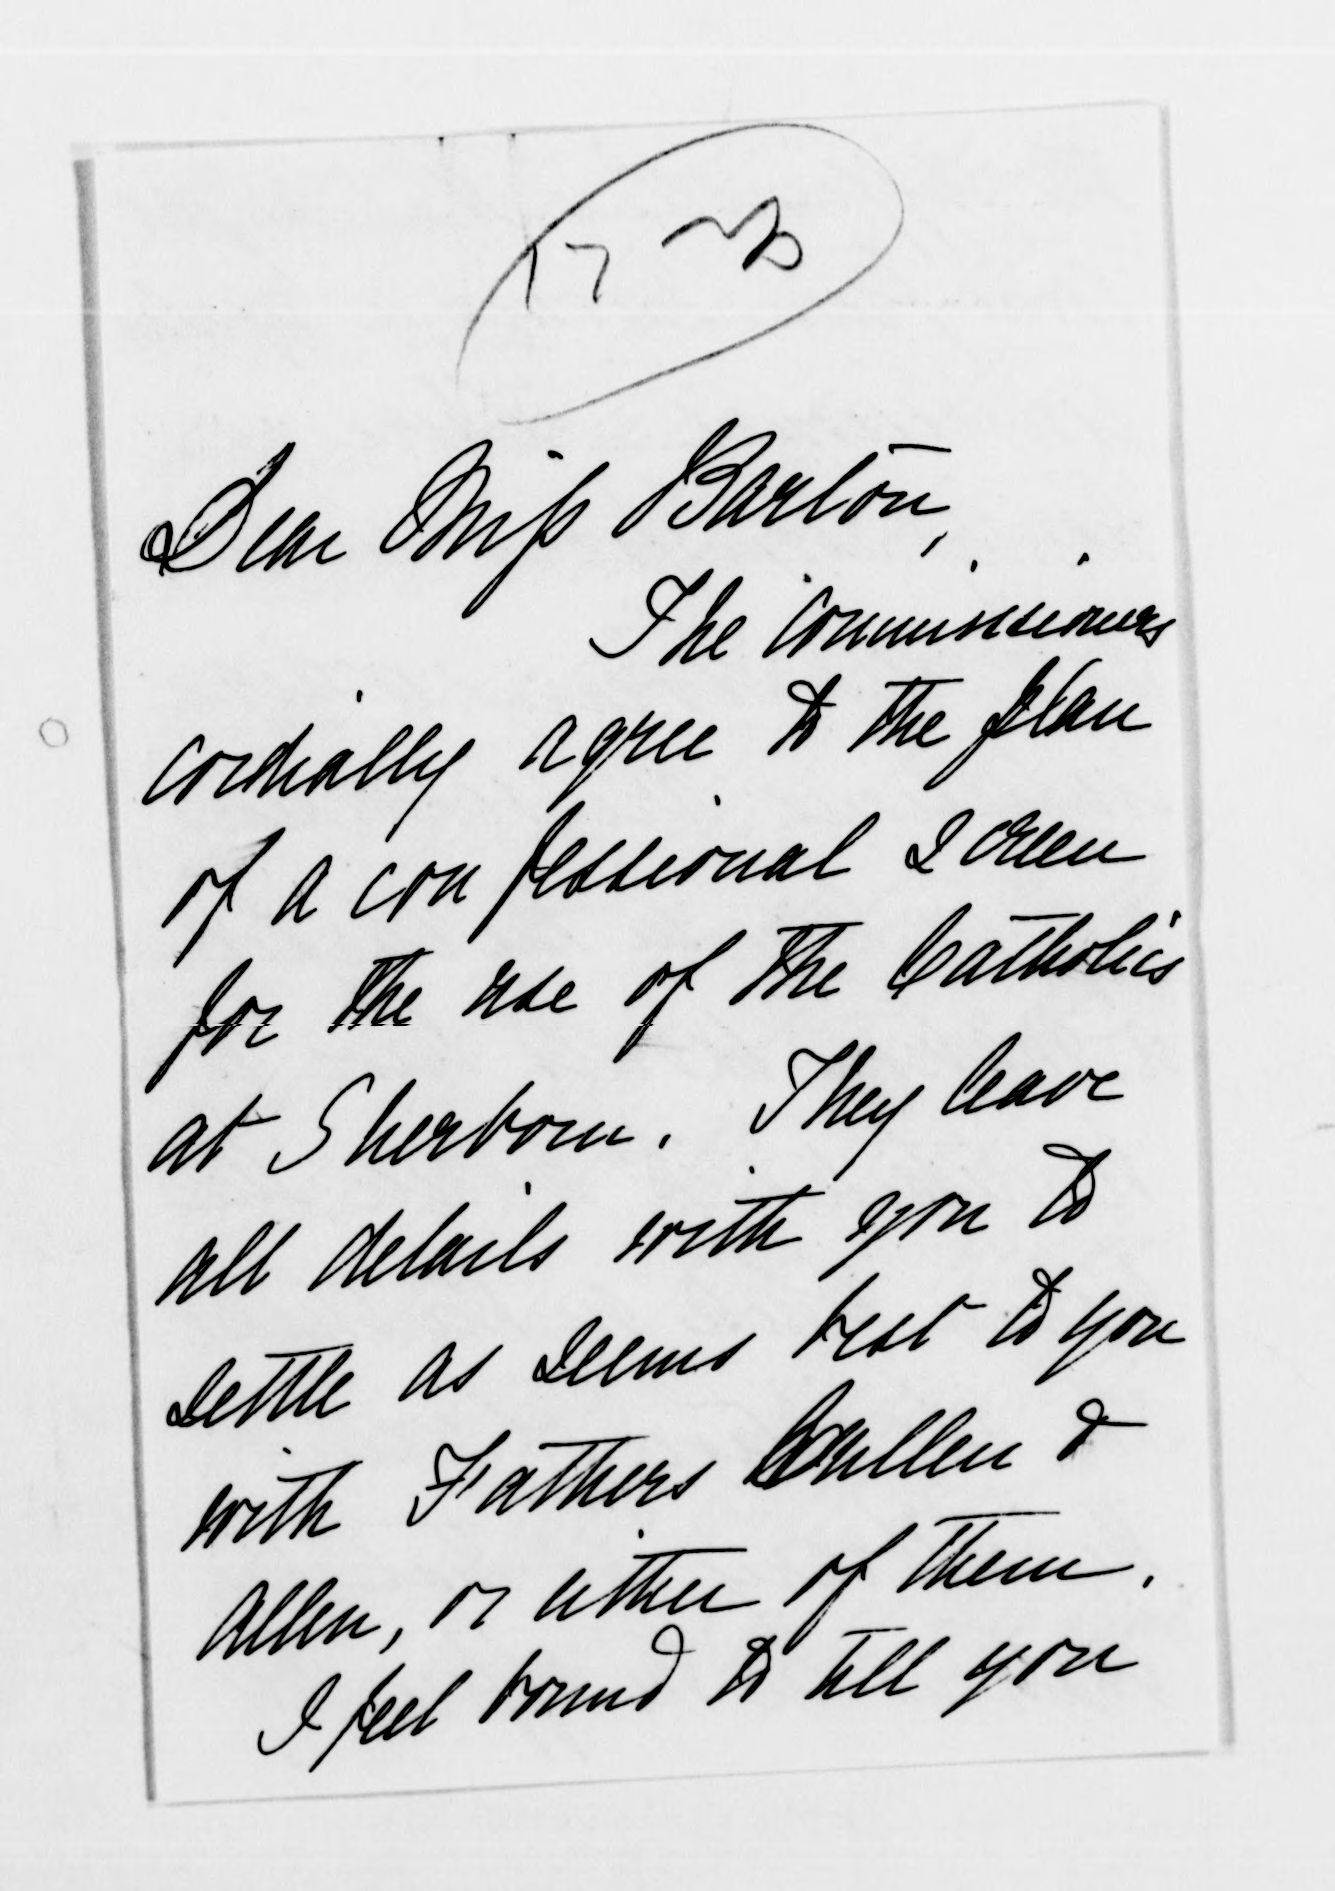 Dear Miss Barton,
The Commissioners
cordially agree to the plan
of a confessional screen
for the use of the Catholics
at Sherborn. They leave
all details with you to
settle as seems best to you
with Fathers Cullen &
Allen, or either of them.
I feel bound to tell you